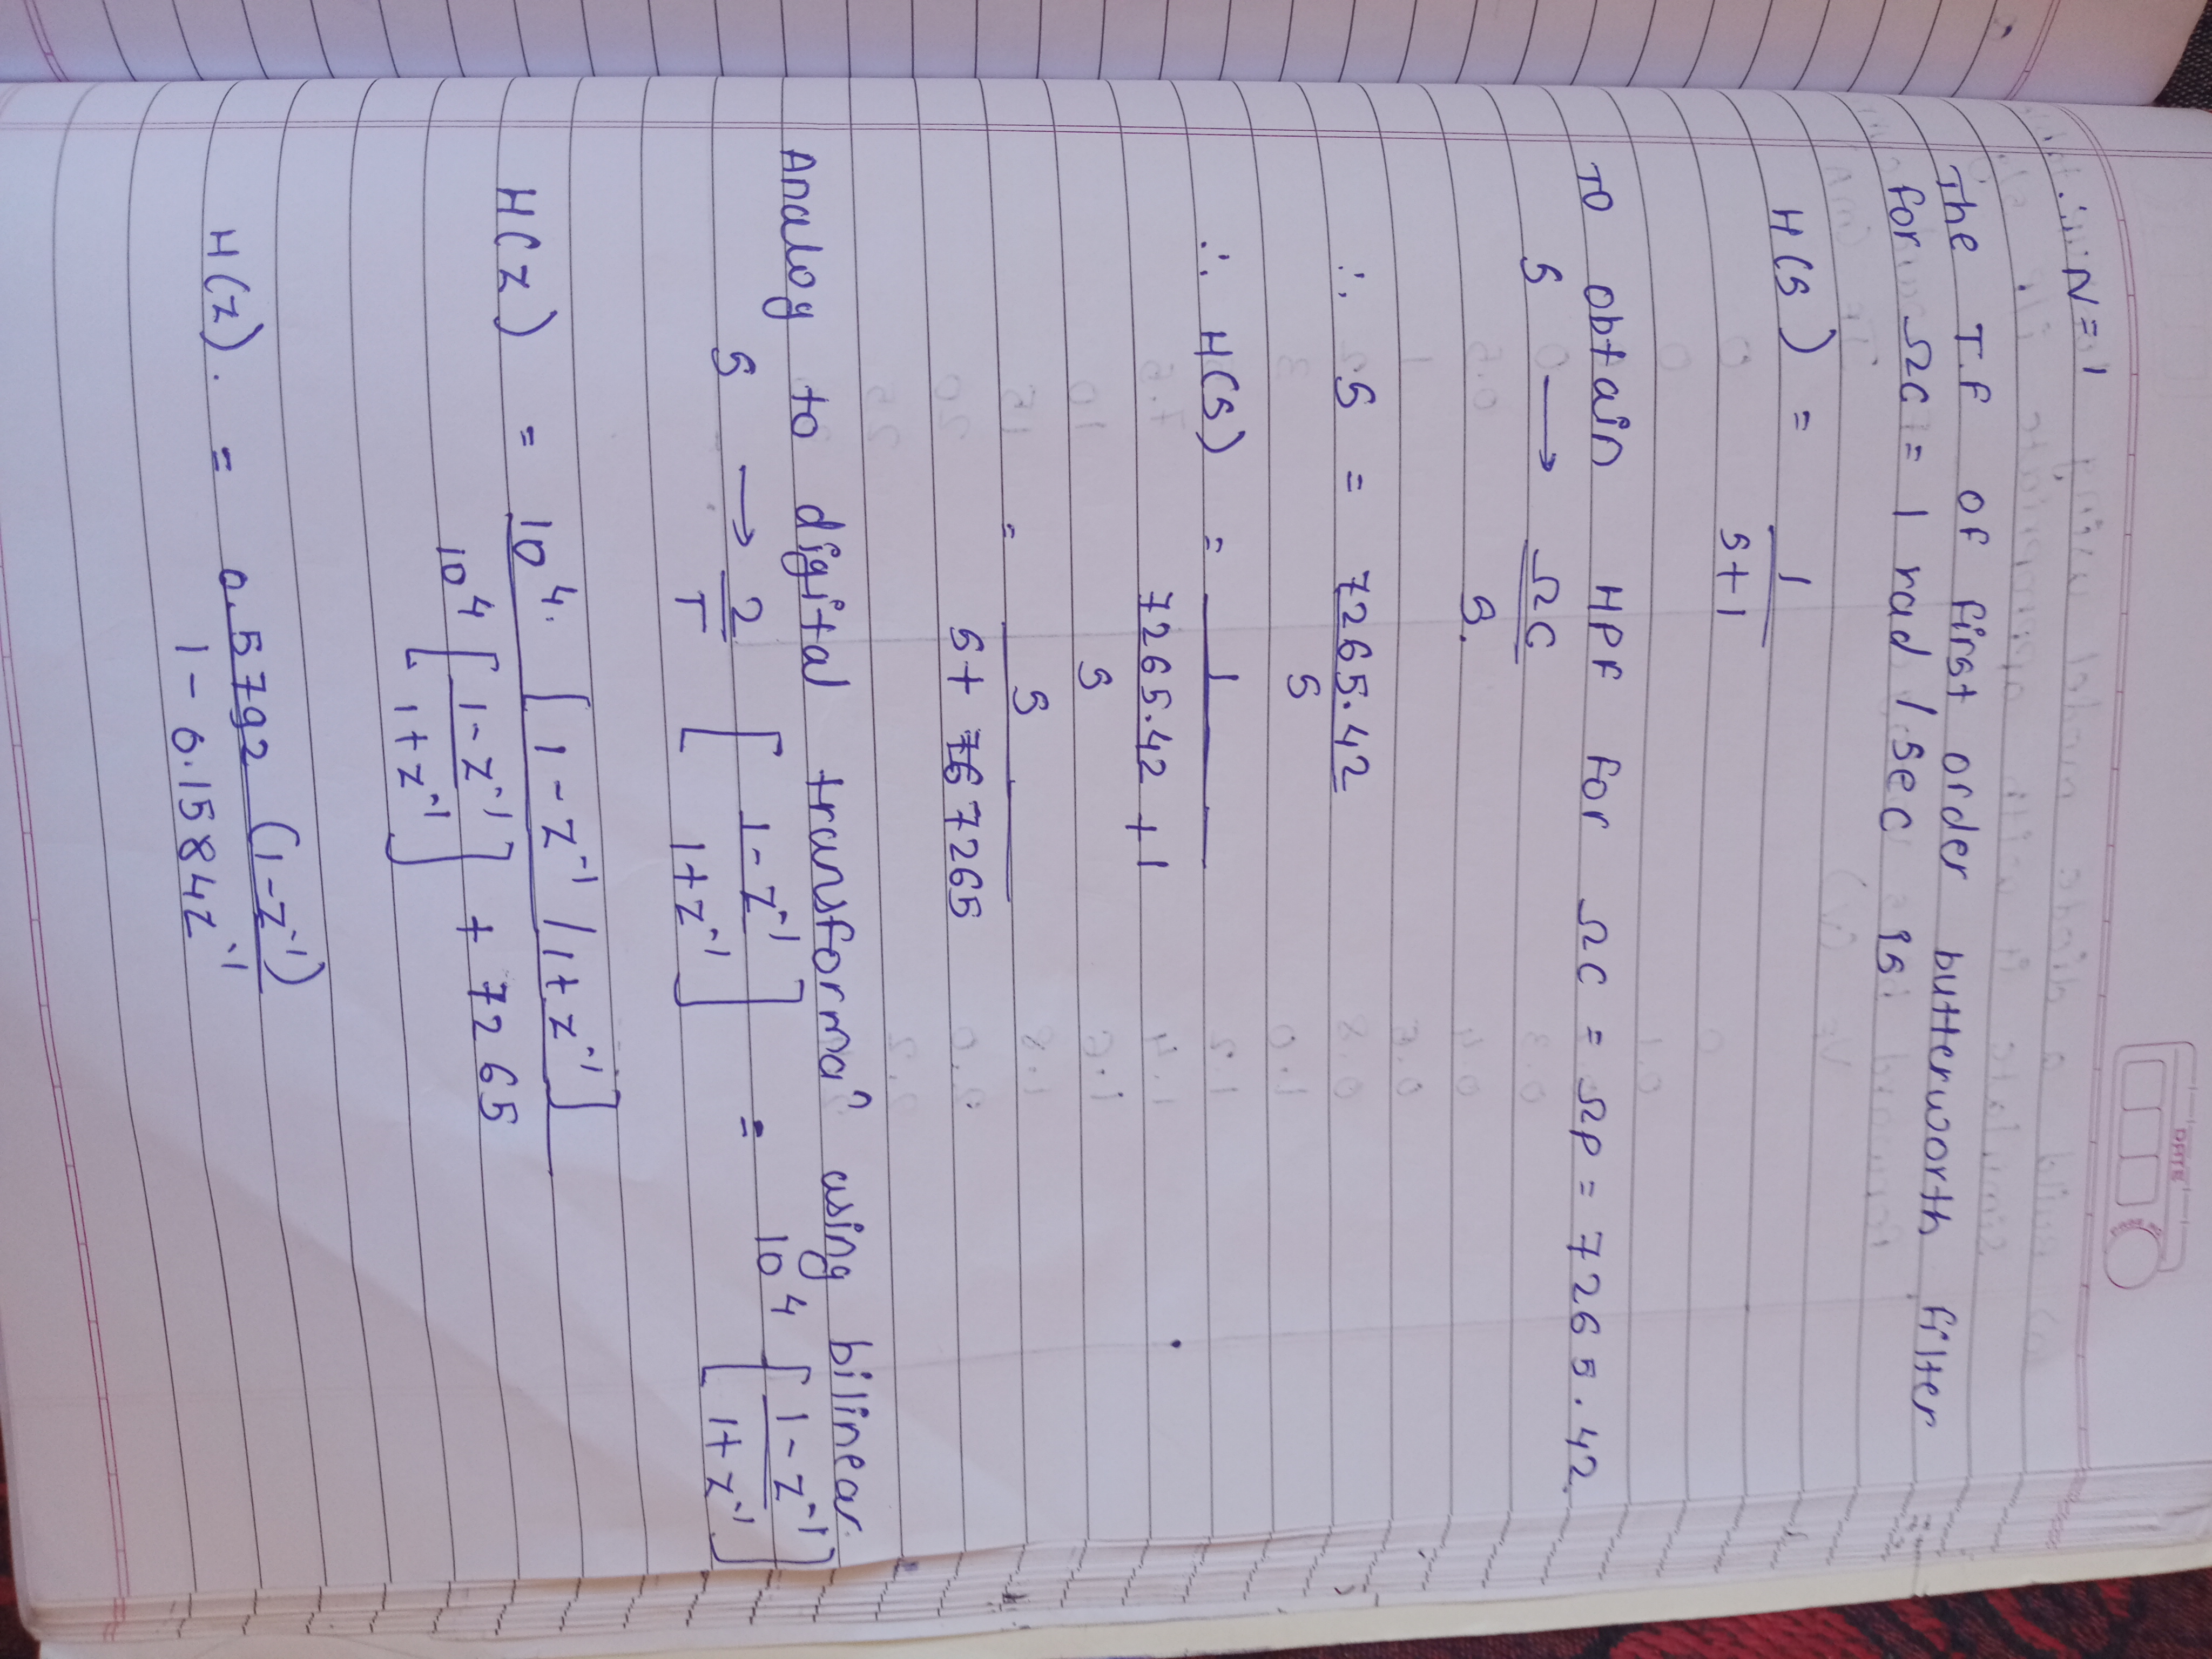 ∴ N = 1
The T.F of first order butterworth filter
for Ωc = 1 rad / sec as
H(s) = 1
s+1
To obtain HPF for Ωc = Ωp = 7265.42
s → Ωc
s.
∴ s = 7265.42
s
∴ H(s) = 1
7265.42 + 1
s
= s
s+ 7265
Analog to digital transforma^n using bilinear.
s → 2/T [ 1-z^-1 / 1+z^-1 ] = 10^4 [ 1-z^-1 / 1+z^-1 ]
H(z) = 10^4. [ 1-z^-1 / 1+z^-1 ]
10^4 [ 1-z^-1 / 1+z^-1 ] + 7265
H(z). = 0.5792 (1-z^-1)
1 - 0.1584z^-1
DATE